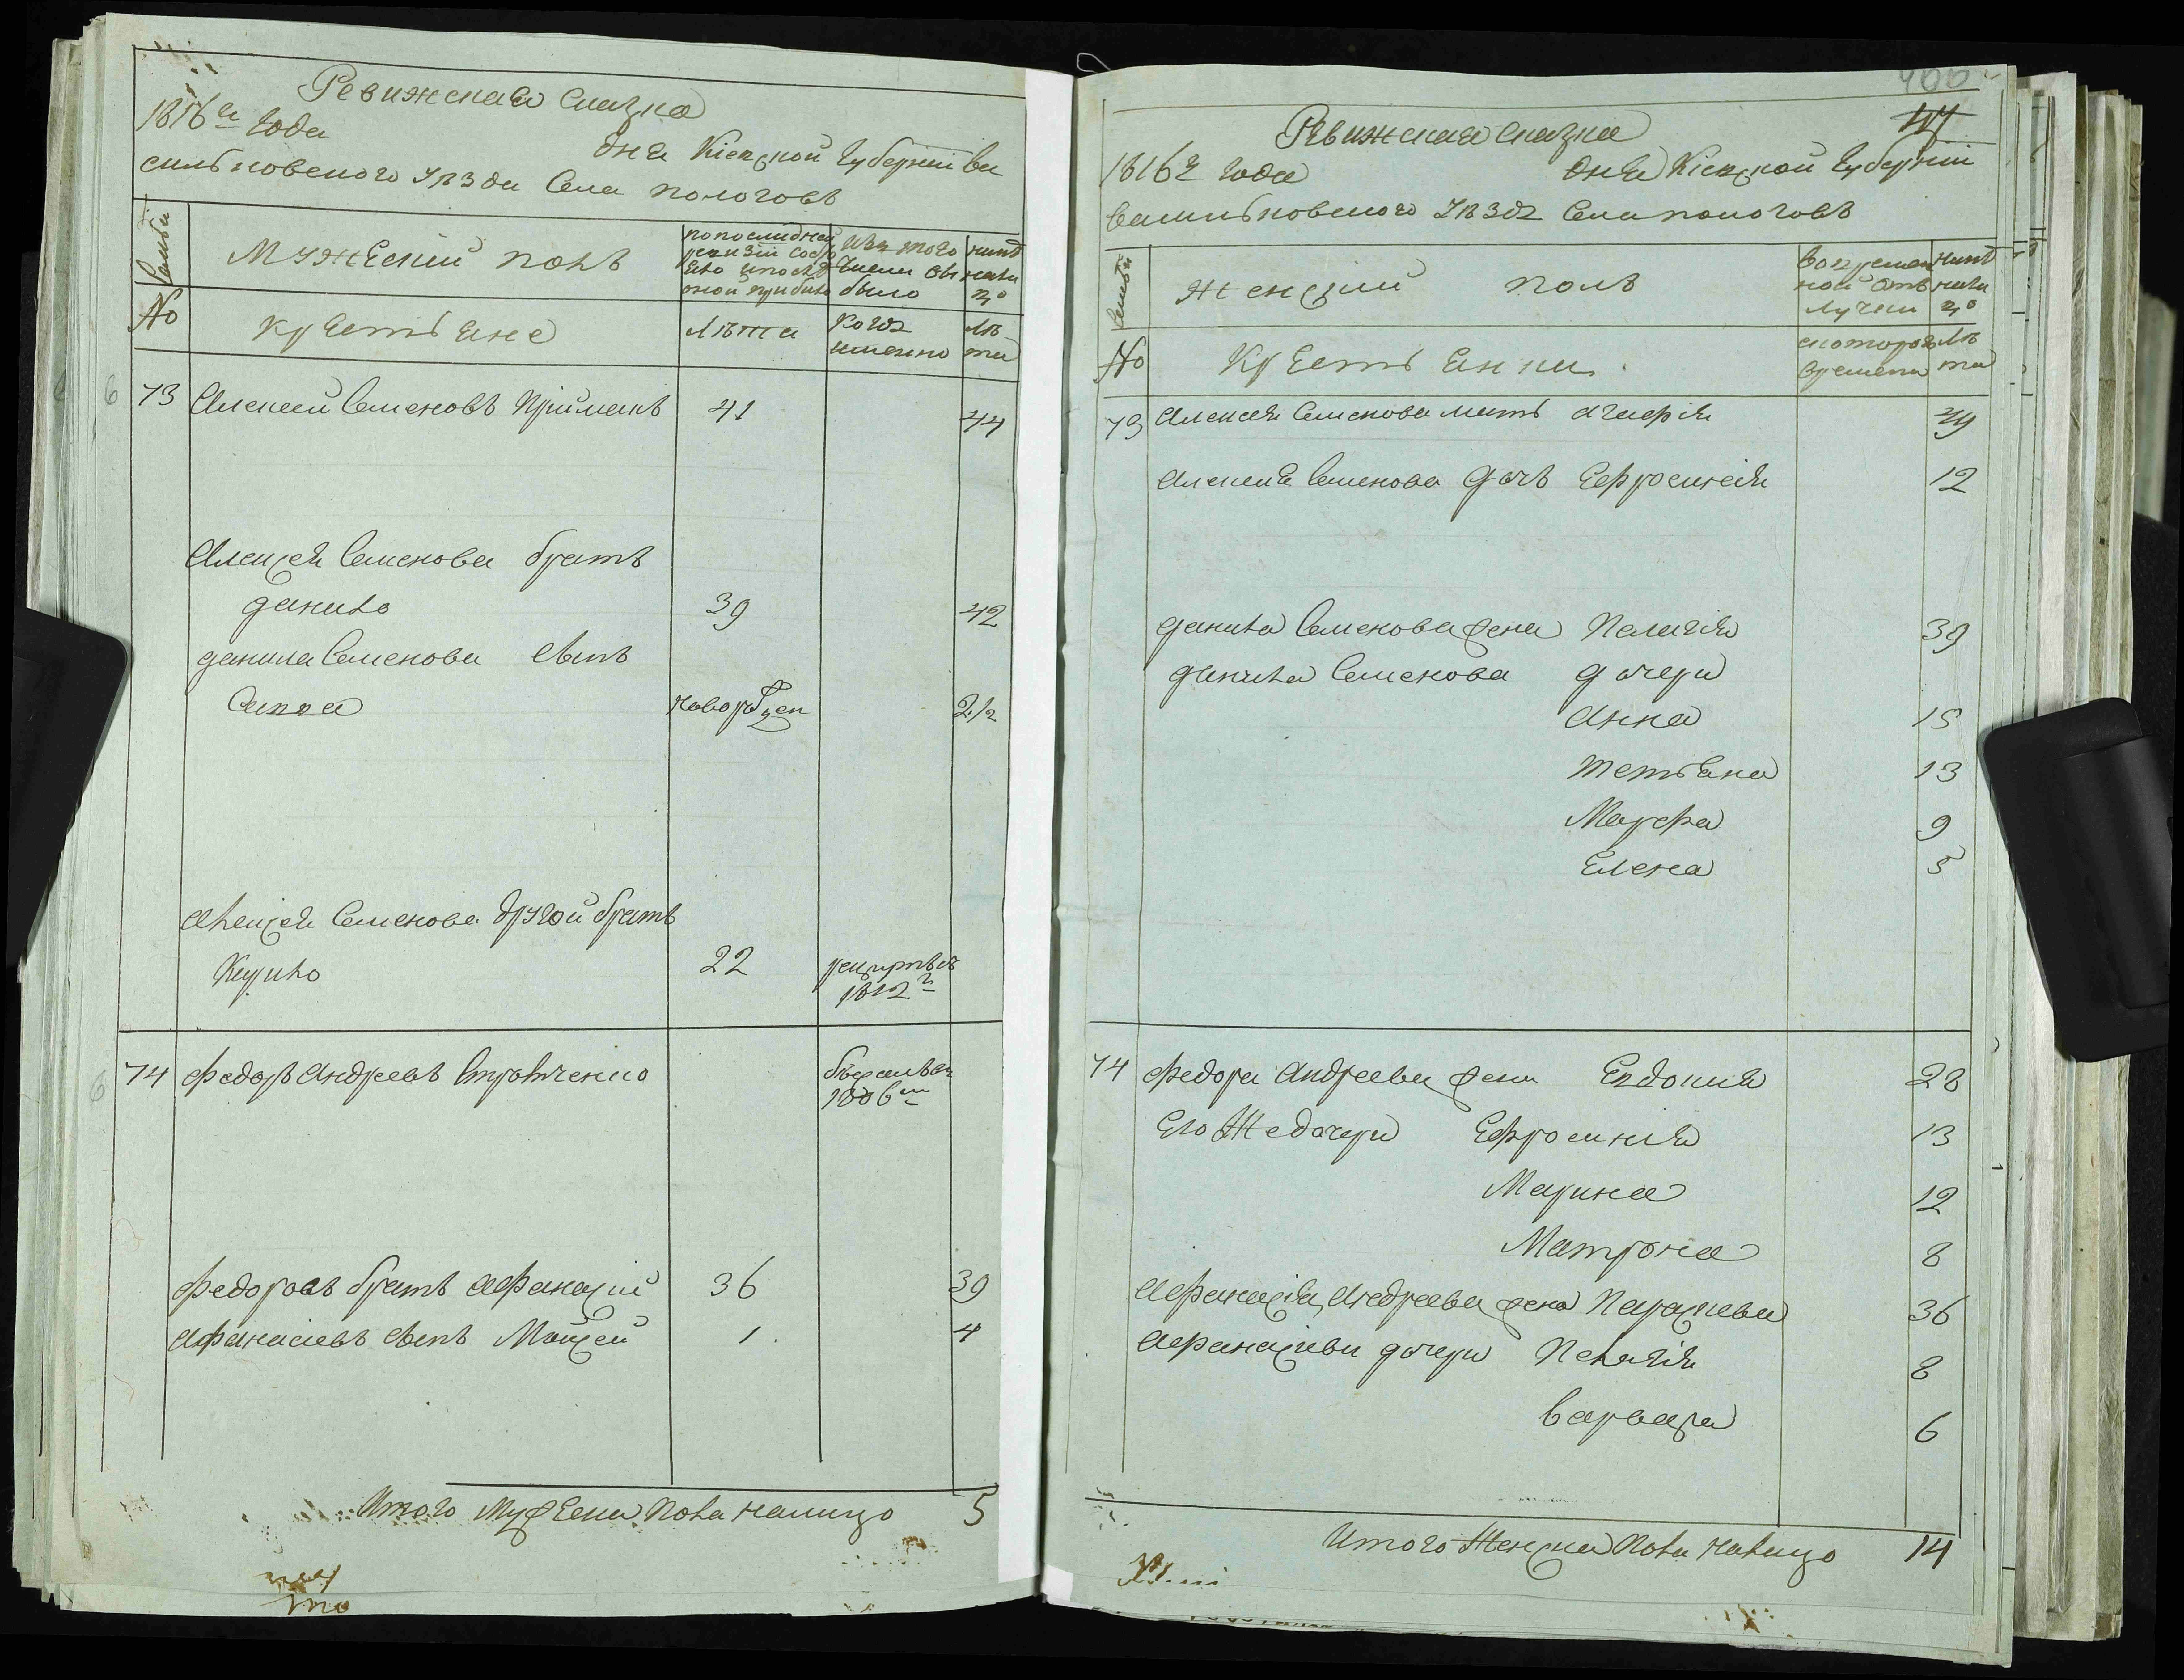 Ревижская сказка
1816го года
дня Кіевской губерніи ва
сильковского уѣзда села пологовъ
Семьи
Мужеский полъ
по последней
ревизіи состо
яло и после
оной прибыло
Изъ того
числа вы
было
ныне
нали
цо
№
крестьяне
Лѣта
Когда
именно
Лѣ
та
73 Алексей Семеновъ Приймакъ 41 44
Алексея Семенова братъ
данило 39 42
данила Семенова сынъ
Сапва новорожден 2 1/2
Алексея Семенова другой братъ
Кирило 22 рекрутъ въ
1812 г
74 Федоръ Андреевъ Стратченко бѣжалъ въ
1806 м
Федоровъ братъ Афанасий 36 39
Афанасиевъ сынъ Мойсей 1 4
Итого мужеска пола налицо 5
400
Ревижская сказка
1816г года
дня Кіевской губерніи
васильковского уѣзда села пологовъ
Семьи
женский полъ
во времен
ной отъ
лучки
ныне
нали
цо
№
Крестьянки
с которого
времени
Лѣ
та
73 Алексея Семенова мать Агафія 79
Алексея Семенова дочь Ефросинія 12
данила Семенова жена Пелагія 39
данила Семенова дочери
Анна 15
Тетьяна 13
Марфа 9
Елена 5
74 Федора Андреева жена Евдокия 28
Его же дочери Ефросинія 13
Марина 12
Матрона 8
Афанасія Андреева жена Параскева 36
Афанасиевы дочери Пелагія 8
варвара 6
Итого женска пола налицо 14